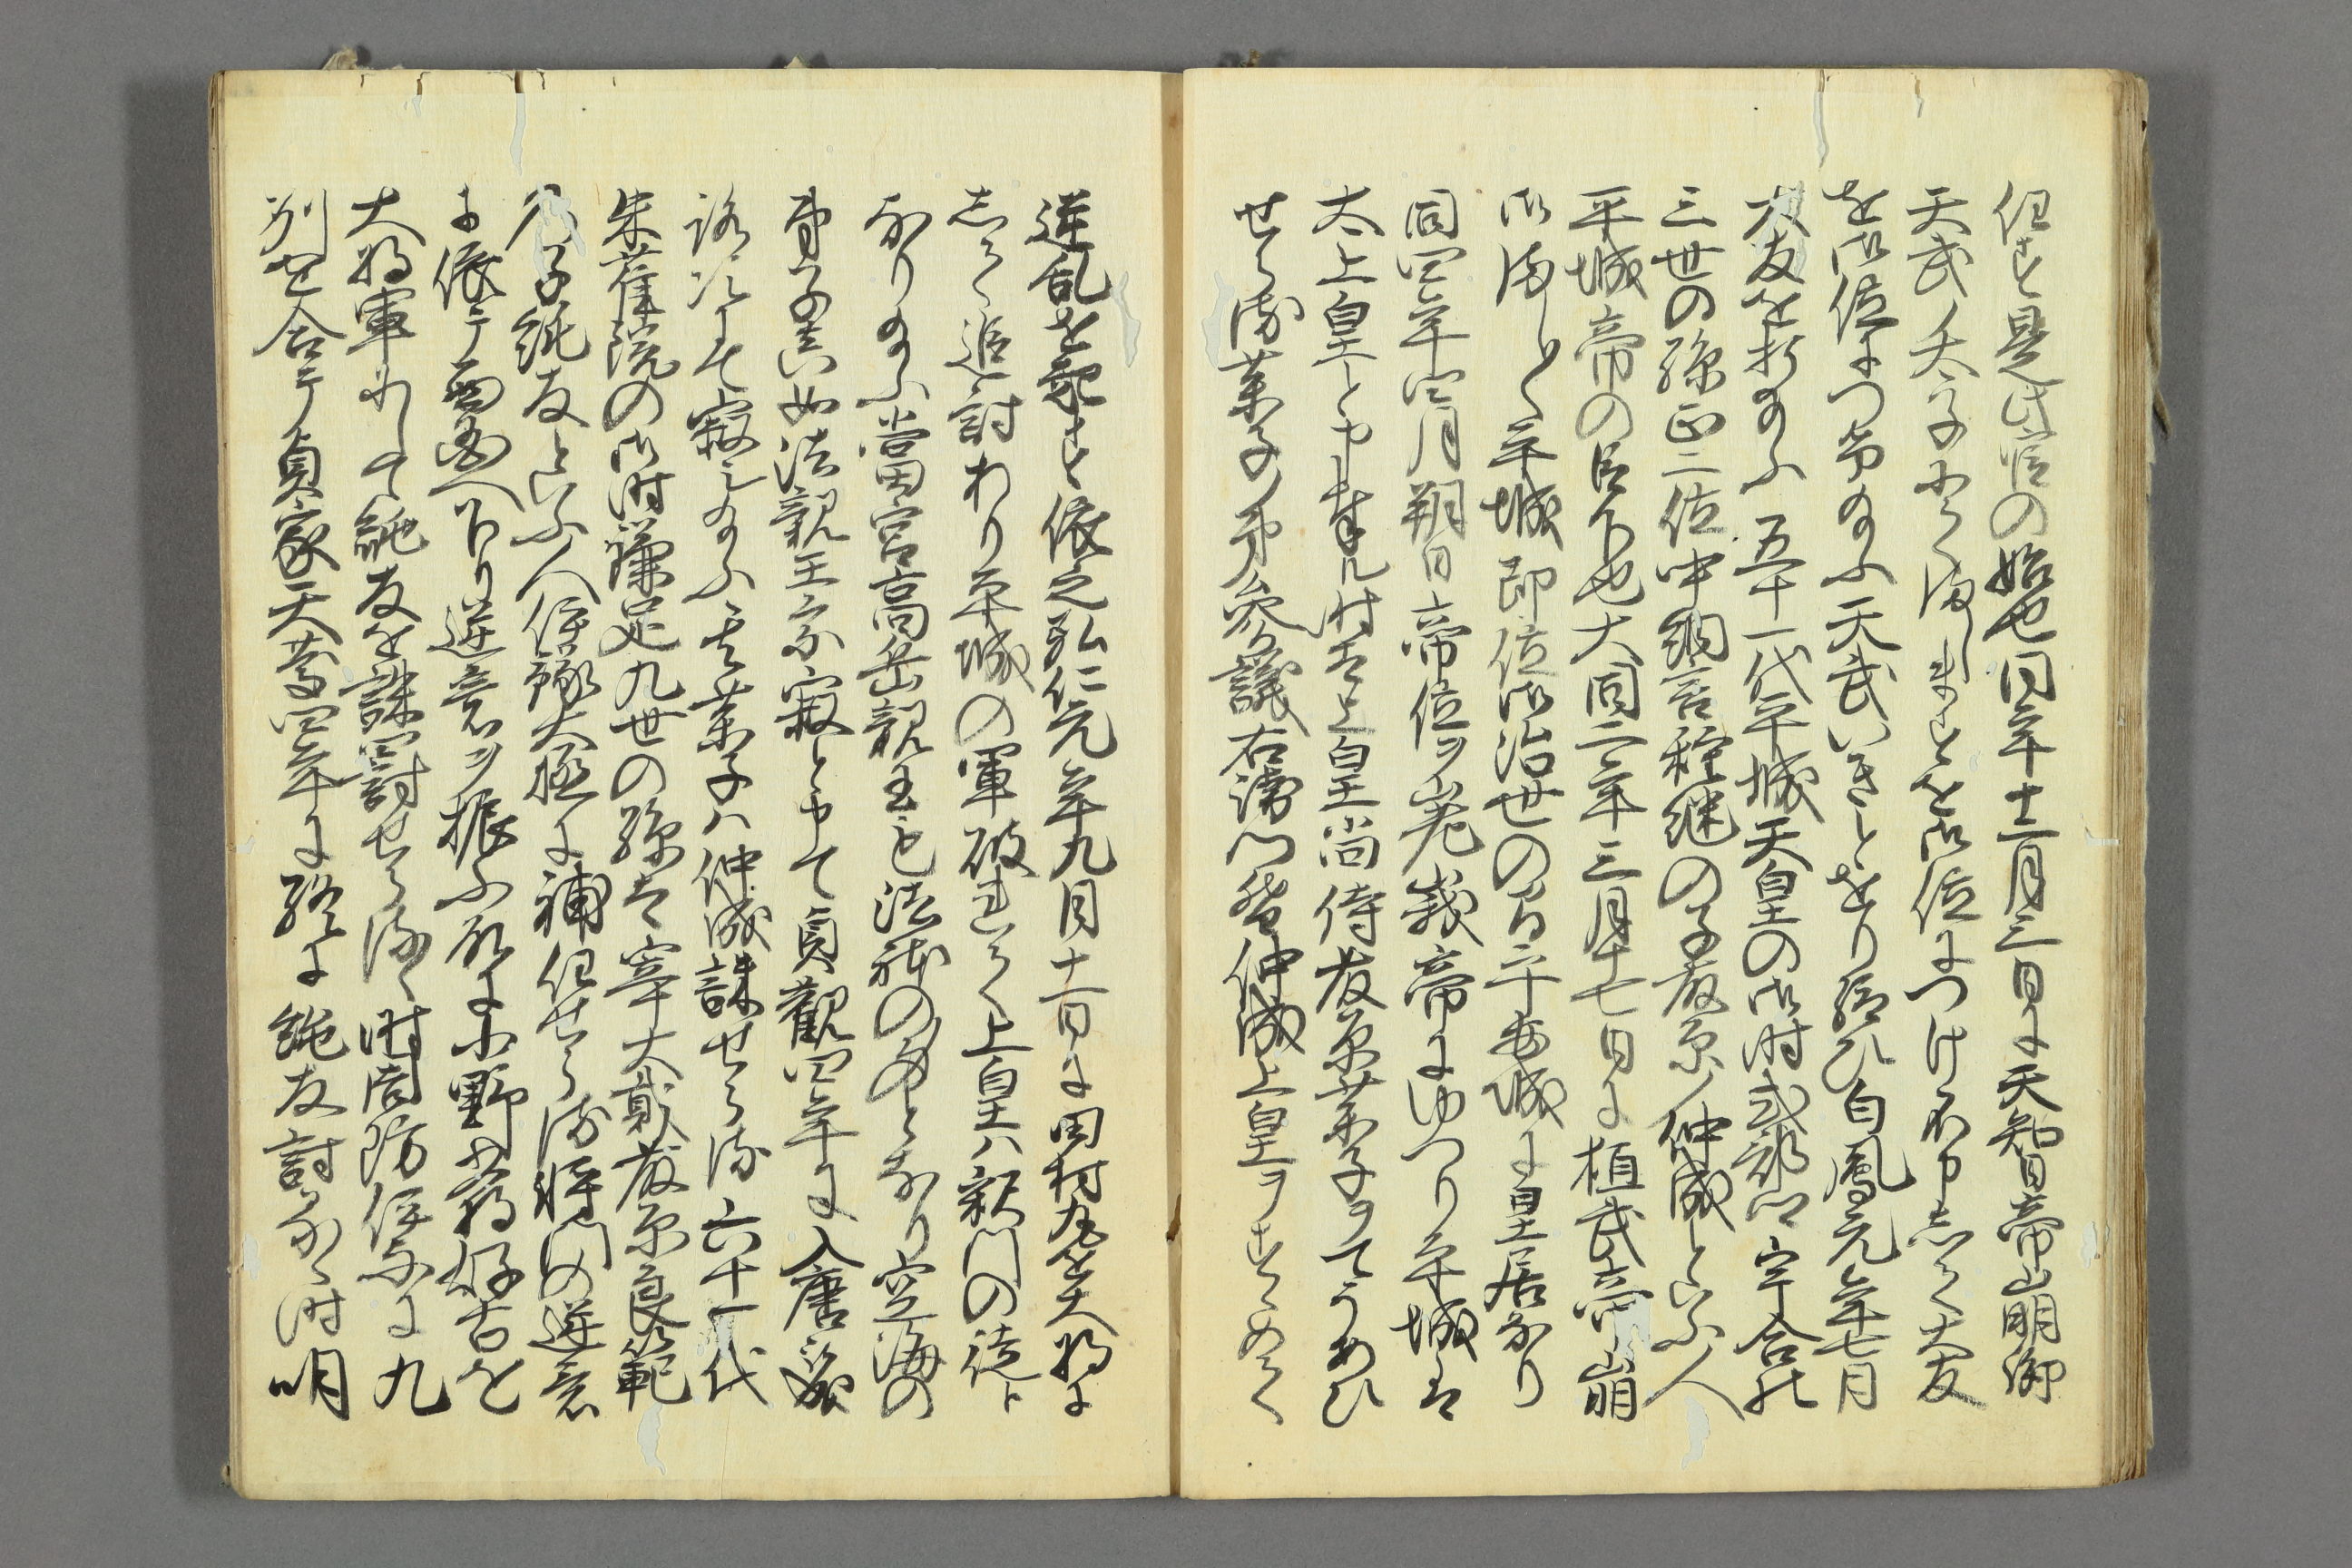 任す是此官の始也同年十二月三日に天智帝崩御
天武ノ太子にてましますを御位につけ不申して大友
を御位につけ給ふ天武いきとをり給ひ白鳳元年七月
大友を打給ふ五十一代平城天皇の御時式部卿宇合の
三世の孫正二位中納言種継の子藤原ノ仲成といふ人
平城帝の臣下也大同二年三月十七日に植武帝崩
御まして平城即位御治世の間平安城に皇居なり
同四年四月朔日帝位ヲ嵯峨帝にゆつり平城は
太上皇と申奉ル時は上皇尚侍藤原薬子ヲてうあひ
せらる薬子ノ弟参議右衛門督仲成上皇ヲすゝめて
逆乱を起す依之弘仁元年九月十一日に田村丸を大将に
して追討あり平城の軍破れて上皇ハ釈門の徒と
なり給ふ當宮高岳親王も法体の身となり空海の
弟子真如法親王亦寂と申て貞觀四年に入唐發
路次にて寂し給ふ其薬子ハ仲成誅せらる六十一代
朱雀院の御時鎌足九世の孫は宰大貳藤原良範
の子純友といふ人伊豫大掾に補任せらる将門の逆意
に依テ西国へ下り逆意ヲ振ふ故に小野ノ好古を
大将軍として純友を誅罸せらる時周防伊与に九
州を合テ貞家天慶四年に終に純友討なる時明